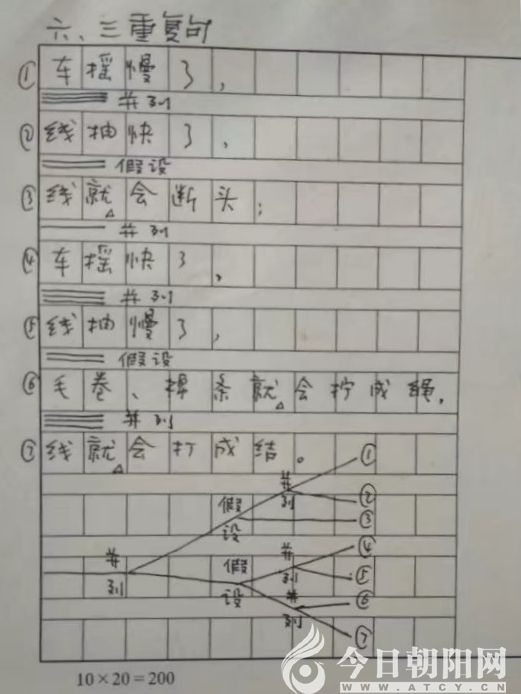 六、三重复句
① 车摇慢了，
并列
② 线抽快了，
假设
③ 线就会断头；
并列
④ 车摇快了，
并列
⑤ 线抽慢了，
假设
⑥ 毛卷、棉条就会拧成绳，
并列
⑦ 线就会打成结。
并列 ①
假设 ②
③
并列 并列 ④
假设 ⑤
并列 ⑥
⑦
10×20=200
今日朝阳网
WWW.ATCY.CN